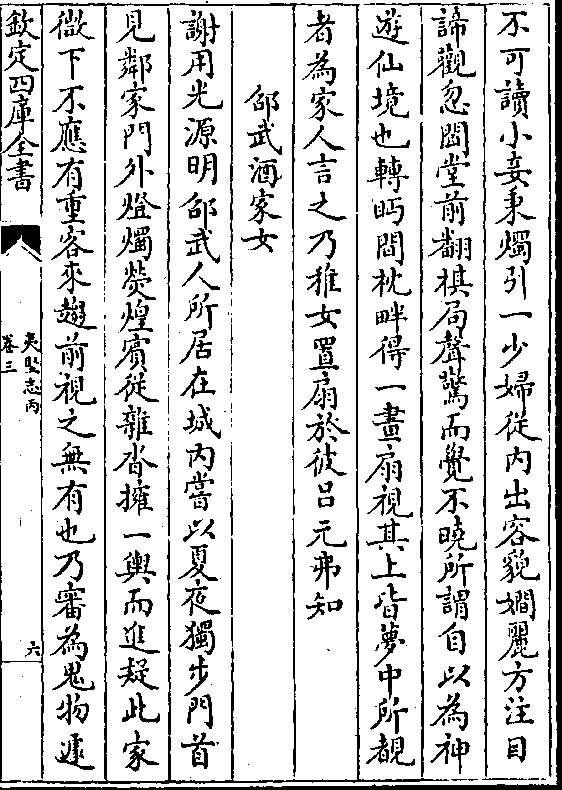 不可讀小妾秉燭引一少婦從内出容貌嫺麗方注目
諦觀忽聞堂前翻棋局聲驚而覺不曉所謂自以為神
遊仙境也轉眄間枕畔得一畫扇視其上皆夢中所覩
者為家人言之乃稚女置扇於彼吕元弗知
邵武酒家女
謝用光源明邵武人所居在城内嘗以夏夜獨步門首
見鄰家門外燈燭熒煌賓從雜沓擁一輿而進疑此家
微下不應有重客來趨前視之無有也乃審為鬼物遽
欽定四庫全書
夷堅志丙
卷三
六